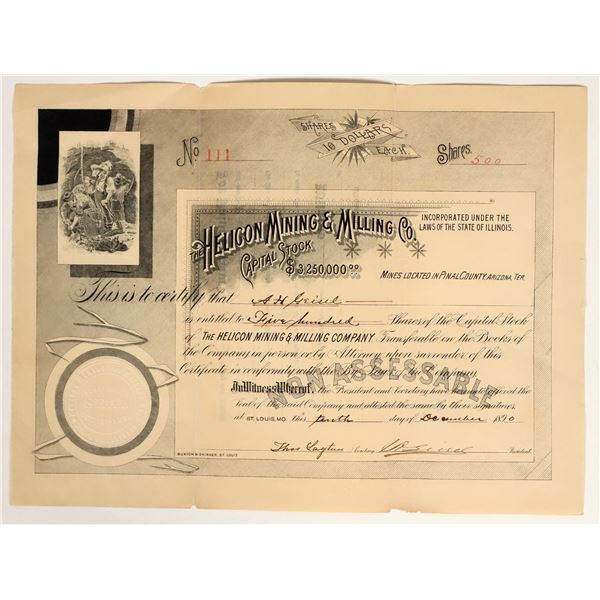 SHARES
10 DOLLARS
EACH.
No 111
Shares. 500
THE HELICON MINING & MILLING CO.
CAPITAL STOCK
$3,250,000.00
INCORPORATED UNDER THE
LAWS OF THE STATE OF ILLINOIS.
MINES LOCATED IN PINAL COUNTY, ARIZONA, TER.
This is to certify that A H Geisel
is entitled to Five hundred Shares of the Capital Stock
of THE HELICON MINING & MILLING COMPANY. Transferable on the Books of
the Company in person or by Attorney upon surrender of this
Certificate in conformity with the By Laws of the Company.
NON ASSESSABLE
In Witness Whereof, The President and Secretary have hereunto affixed the
Seal of the said Company and attested the same by their Signatures
at ST. LOUIS, MO. this tenth day of December 1890
Thos Layton Secretary Geisel President
BUXTON & SKINNER, ST. LOUIS